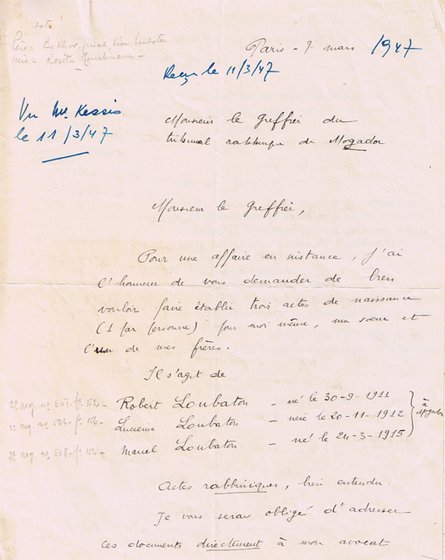 Père = Bekhor
mère = Rosita
Paris - 7 mars 1947
Reçu le 11/3/47
Vu Mr. Kessis
le 11/3/47
Monsieur le Greffier du
tribunal rabbinique de Mogador
Monsieur le Greffier,
Pour une affaire en instance, j'ai
l'honneur de vous demander de bien
vouloir faire établir trois actes de naissance
(1 par personne) pour moi même, ma sœur et
l'un de mes frères.
Il s'agit de
Robert Loubaton - né le 30-9-1911
Lucienne Loubaton - née le 20-11-1912
Marcel Loubaton - né le 24-3-1915
à Mogador
Actes rabbiniques, bien entendu
Je vous serais obligé d'adresser
ces documents directement à mon avocat